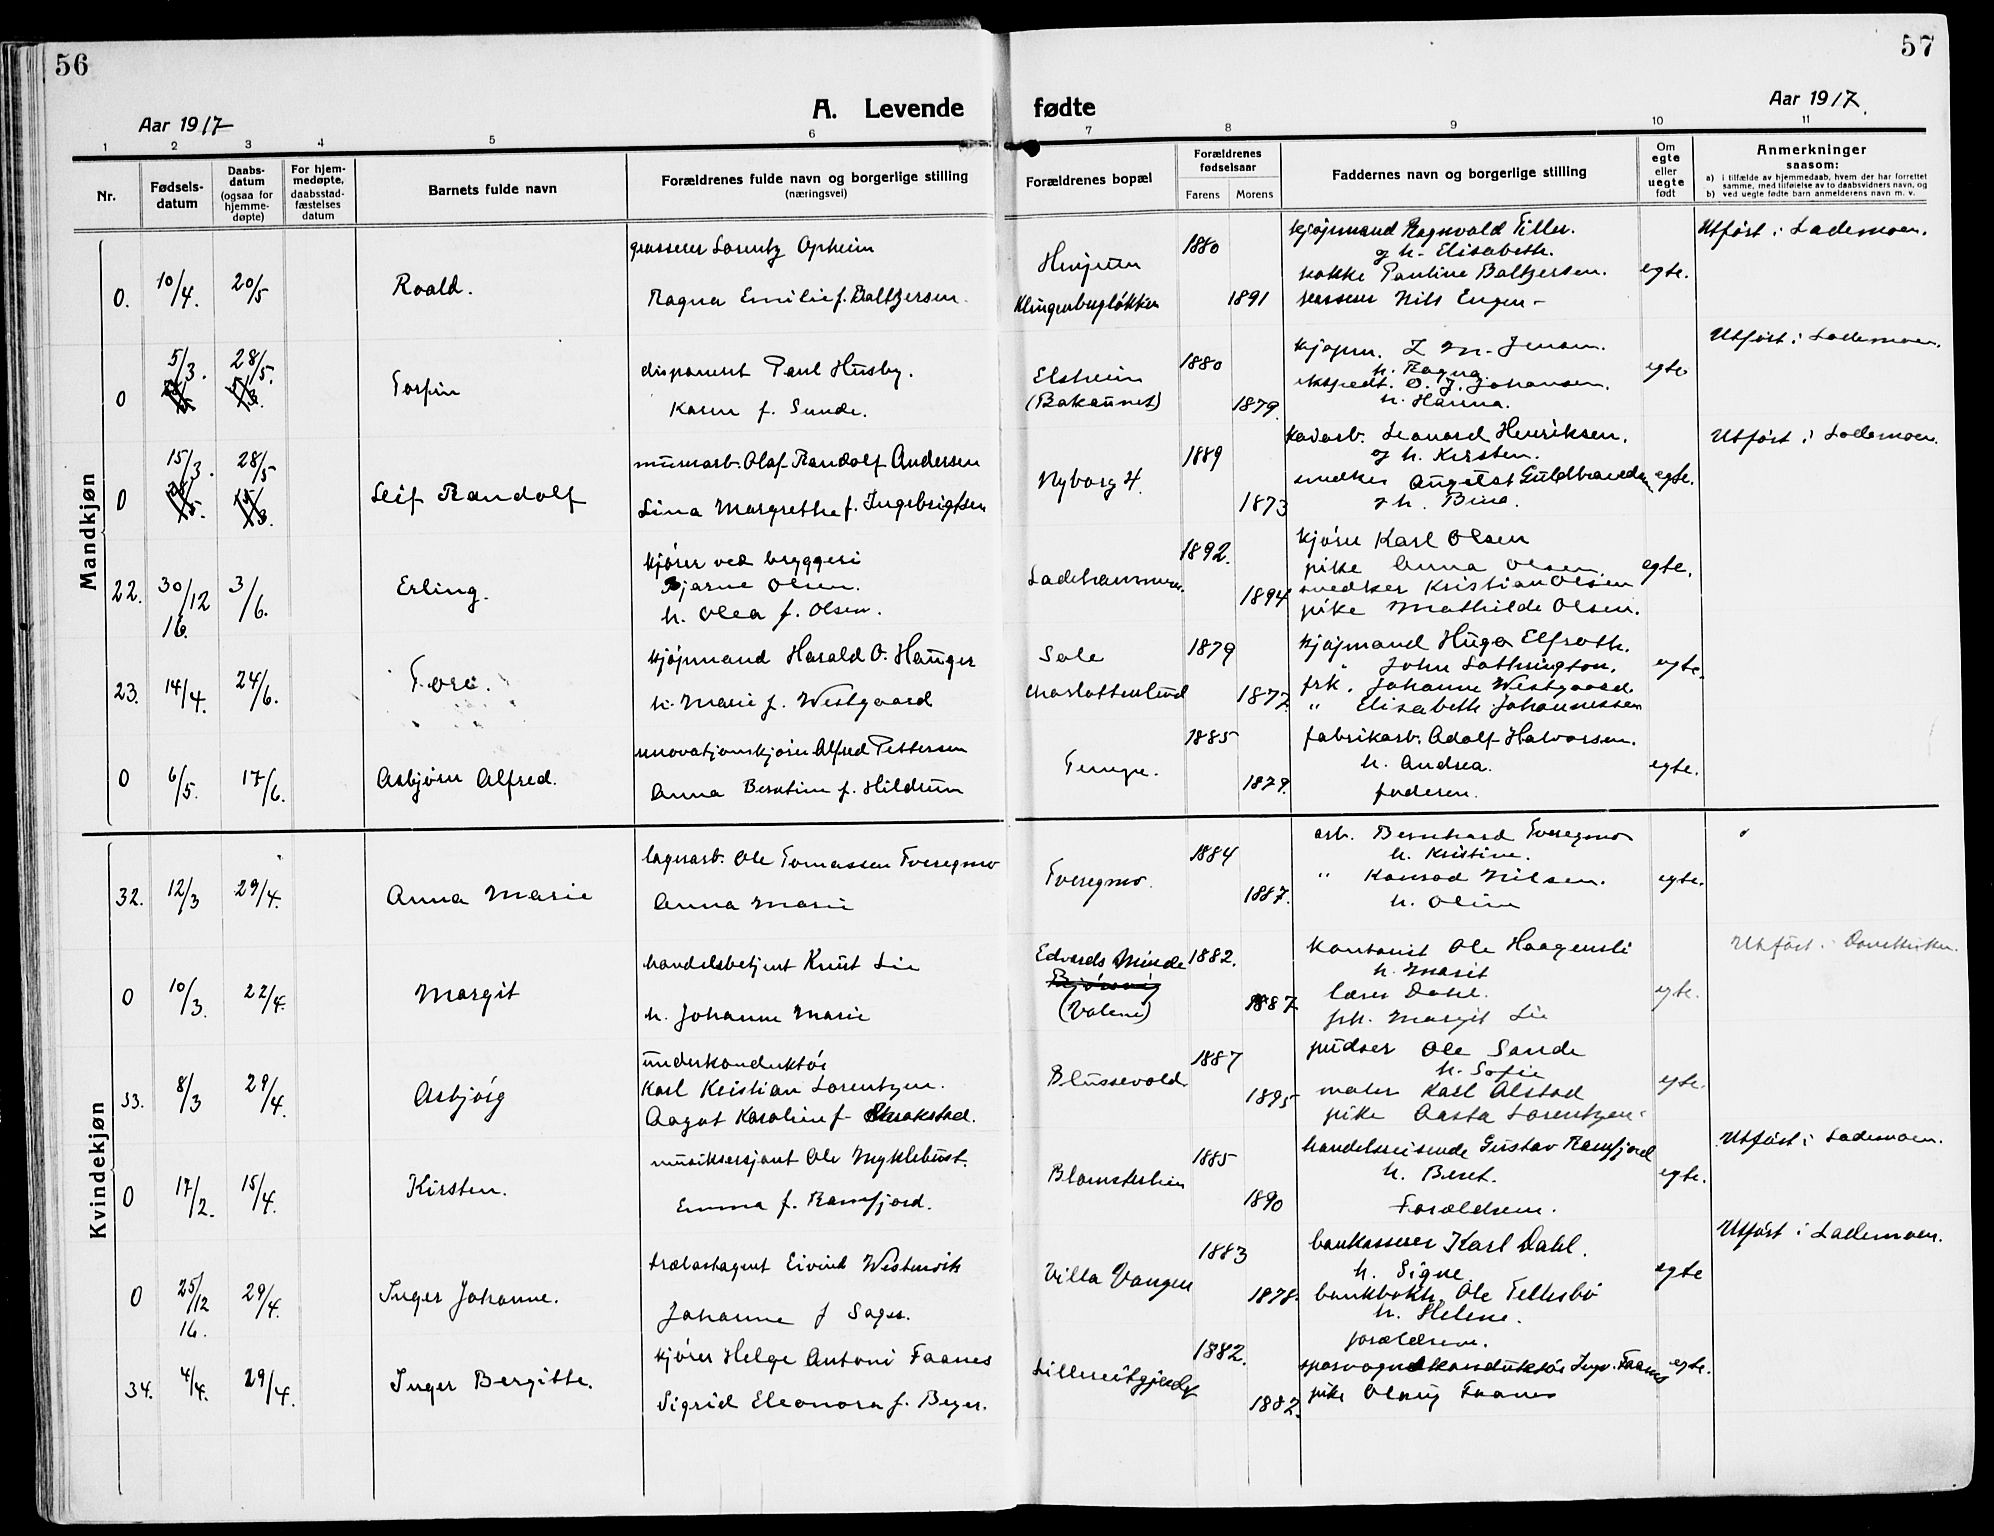 56
57
A. Levende fødte
Aar 1917
Aar 1917.
1 2 3 4 5 6 7 8 9 10 11
Nr.
Fødsels-
datum
Daabs-
datum
(ogsaa for
hjemme-
døpte)
For hjem-
medøpte,
daabsstad-
fæstelses
datum
Barnets fulde navn
Forældrenes fulde navn og borgerlige stilling
(næringsvei)
Forældrenes bopæl
Forældrenes
fødselsaar
Farens Morens
Faddernes navn og borgerlige stilling
Om
egte
eller
uegte
født
Anmerkninger
saasom:
a) i tilfælde av hjemmedaab, hvem der har forrettet
samme, med tilføielse av to daabsvidners navn, og
b) ved uegte fødte barn anmelderens navn m. v.
Mandkjøn
0. 10/4. 20/5 Roald.
grosserer Lorentz Opheim
Ragna Emilie f. Baltzersen.
Klingenbergløkken
1880
1891
kjøpmand Ragnvald Tiller.
og h. Elisabeth.
kokke Pauline Baltzersen.
Nils Engen
egte.
Utført i Lademoen.
0 5/3. 28/5. Torfin
disponent Paul Husby.
Karen f. Sunde.
Elsheim
(Bakaunet)
1880
1879.
kjøpm. L. M. Jensen.
h. Ragna
ekspedt. O. J. Johansen.
h. Hanna.
egte
Utført i Lademoen.
0 15/3. 28/5 Leif Randolf
murerarb. Olaf Randolf Andersen
Lina Margrethe f. Ingebrigtsen
Nyborg 4.
1889
1873
Leonard Henriksen.
og h. Kirsten.
snedker August Guldbrandsen
og h. Bina.
egte.
Utført i Lademoen.
22. 30/12 16. 3/6. Erling.
kjører ved bryggeri
Bjarne Olsen.
h. Olea f. Olsen.
Ladehammeren.
1892.
1894
kjører Karl Olsen
pike Anna Olsen.
snedker Kristian Olsen
pike Mathilde Olsen.
egte.
23. 14/4. 24/6. Tore.
kjøpmand Harald O. Hanger
h. Marie f. Westgaard
Sole
Charlottenlund
1879
1877.
kjøpmand Hugo Elfroth.
" John Lothrington.
frk. Johanne Westgaard
" Elisabeth Johannessen
egte.
0 6/5. 17/6. Asbjørn Alfred.
renovationskjører Alfred Pettersen
Anna Berntine f. Hildrum
Tempe.
1885
1879.
fabrikarb. Adolf Halvorsen.
h. Andrea.
faderen.
egte.
Kvindekjøn
32. 12/3 29/4. Anna Marie
lagerarb. Ole Tomassen Tveregmo
Anna Marie
Tveregmo.
1884
1887.
arb. Bernhard Tveregmo
h. Kristine.
" Konrad Nilsen.
h. Oline
egte.
0 10/3. 22/4. Margit
handelsbetjent Knut Lie
h. Johanne Marie
Edvards Minde
(Valene)
1882.
1887
kontorist Ole Haagensli
h. Marit
lærer Dahl.
frk. Margit Lie
egte.
Utført i Domkirken.
33. 8/3 29/4. Asbjørg
underkonduktør
Karl Kristian Lorentzen.
Aagot Karoline f. Skrokstad.
Blussevold
1887
1895
pudser Ole Sande
h. Sofie
maler Karl Alstad
pike Aasta Lorentzen.
egte.
0 17/2. 15/4. Kirsten.
musiksersjant Ole Myklebust.
Emma f. Ramfjord.
Blomsterheim
1885
1890
handelsreisende Gustav Ramfjord
h. Beret.
Forældrene.
egte.
Utført i Lademoen.
0 25/12 16. 29/4. Inger Johanne.
trælastagent Eivind Westervik
Johanne f Sager.
Villa Vangen
1883
1878.
bankasserer Karl Dahl.
h. Signe
bankbokh. Ole Tellesbø
h. Helene.
forældrene.
egte
Utført i Lademoen.
34. 4/4. 29/4. Inger Bergitte.
kjører Helge Antoni Faanes
Sigrid Eleonora f. Beyer.
1882.
1882.
sporvognskonduktør Ingv. Faanes
pike Olaug Faanes
egte.